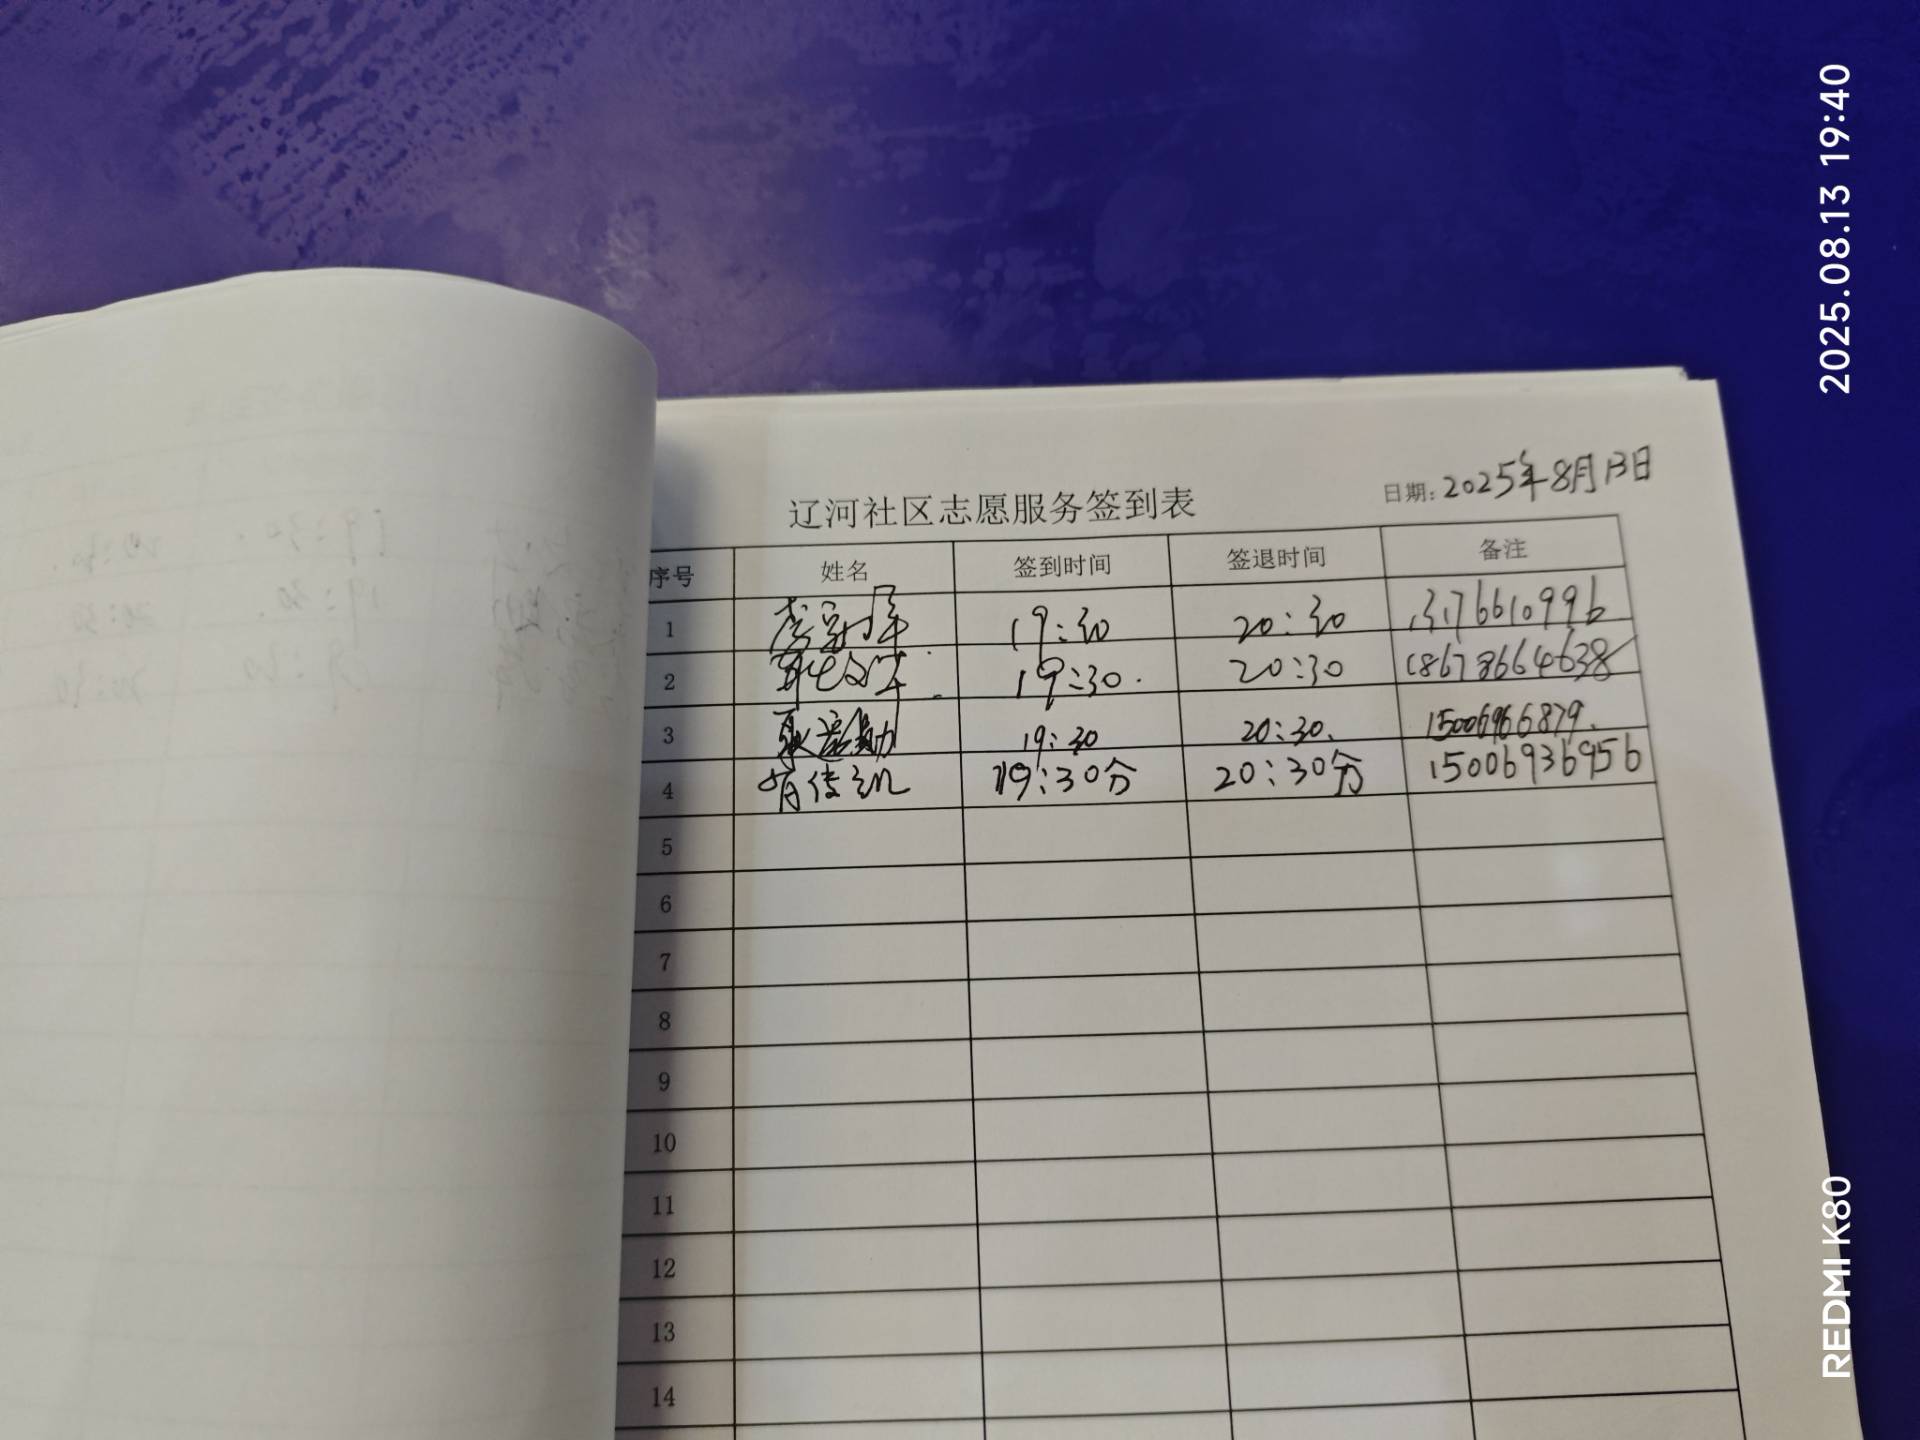 2025.08.13 19:40
辽河社区志愿服务签到表
日期: 2025年8月13日
序号 姓名 签到时间 签退时间 备注
1 19:30 20:30
2 19:30 20:30 18678664638
3 19:30 20:30 15006966879
4 19:30分 20:30分 15006936956
5
6
7
8
9
10
11
12
13
14
REDMI K80